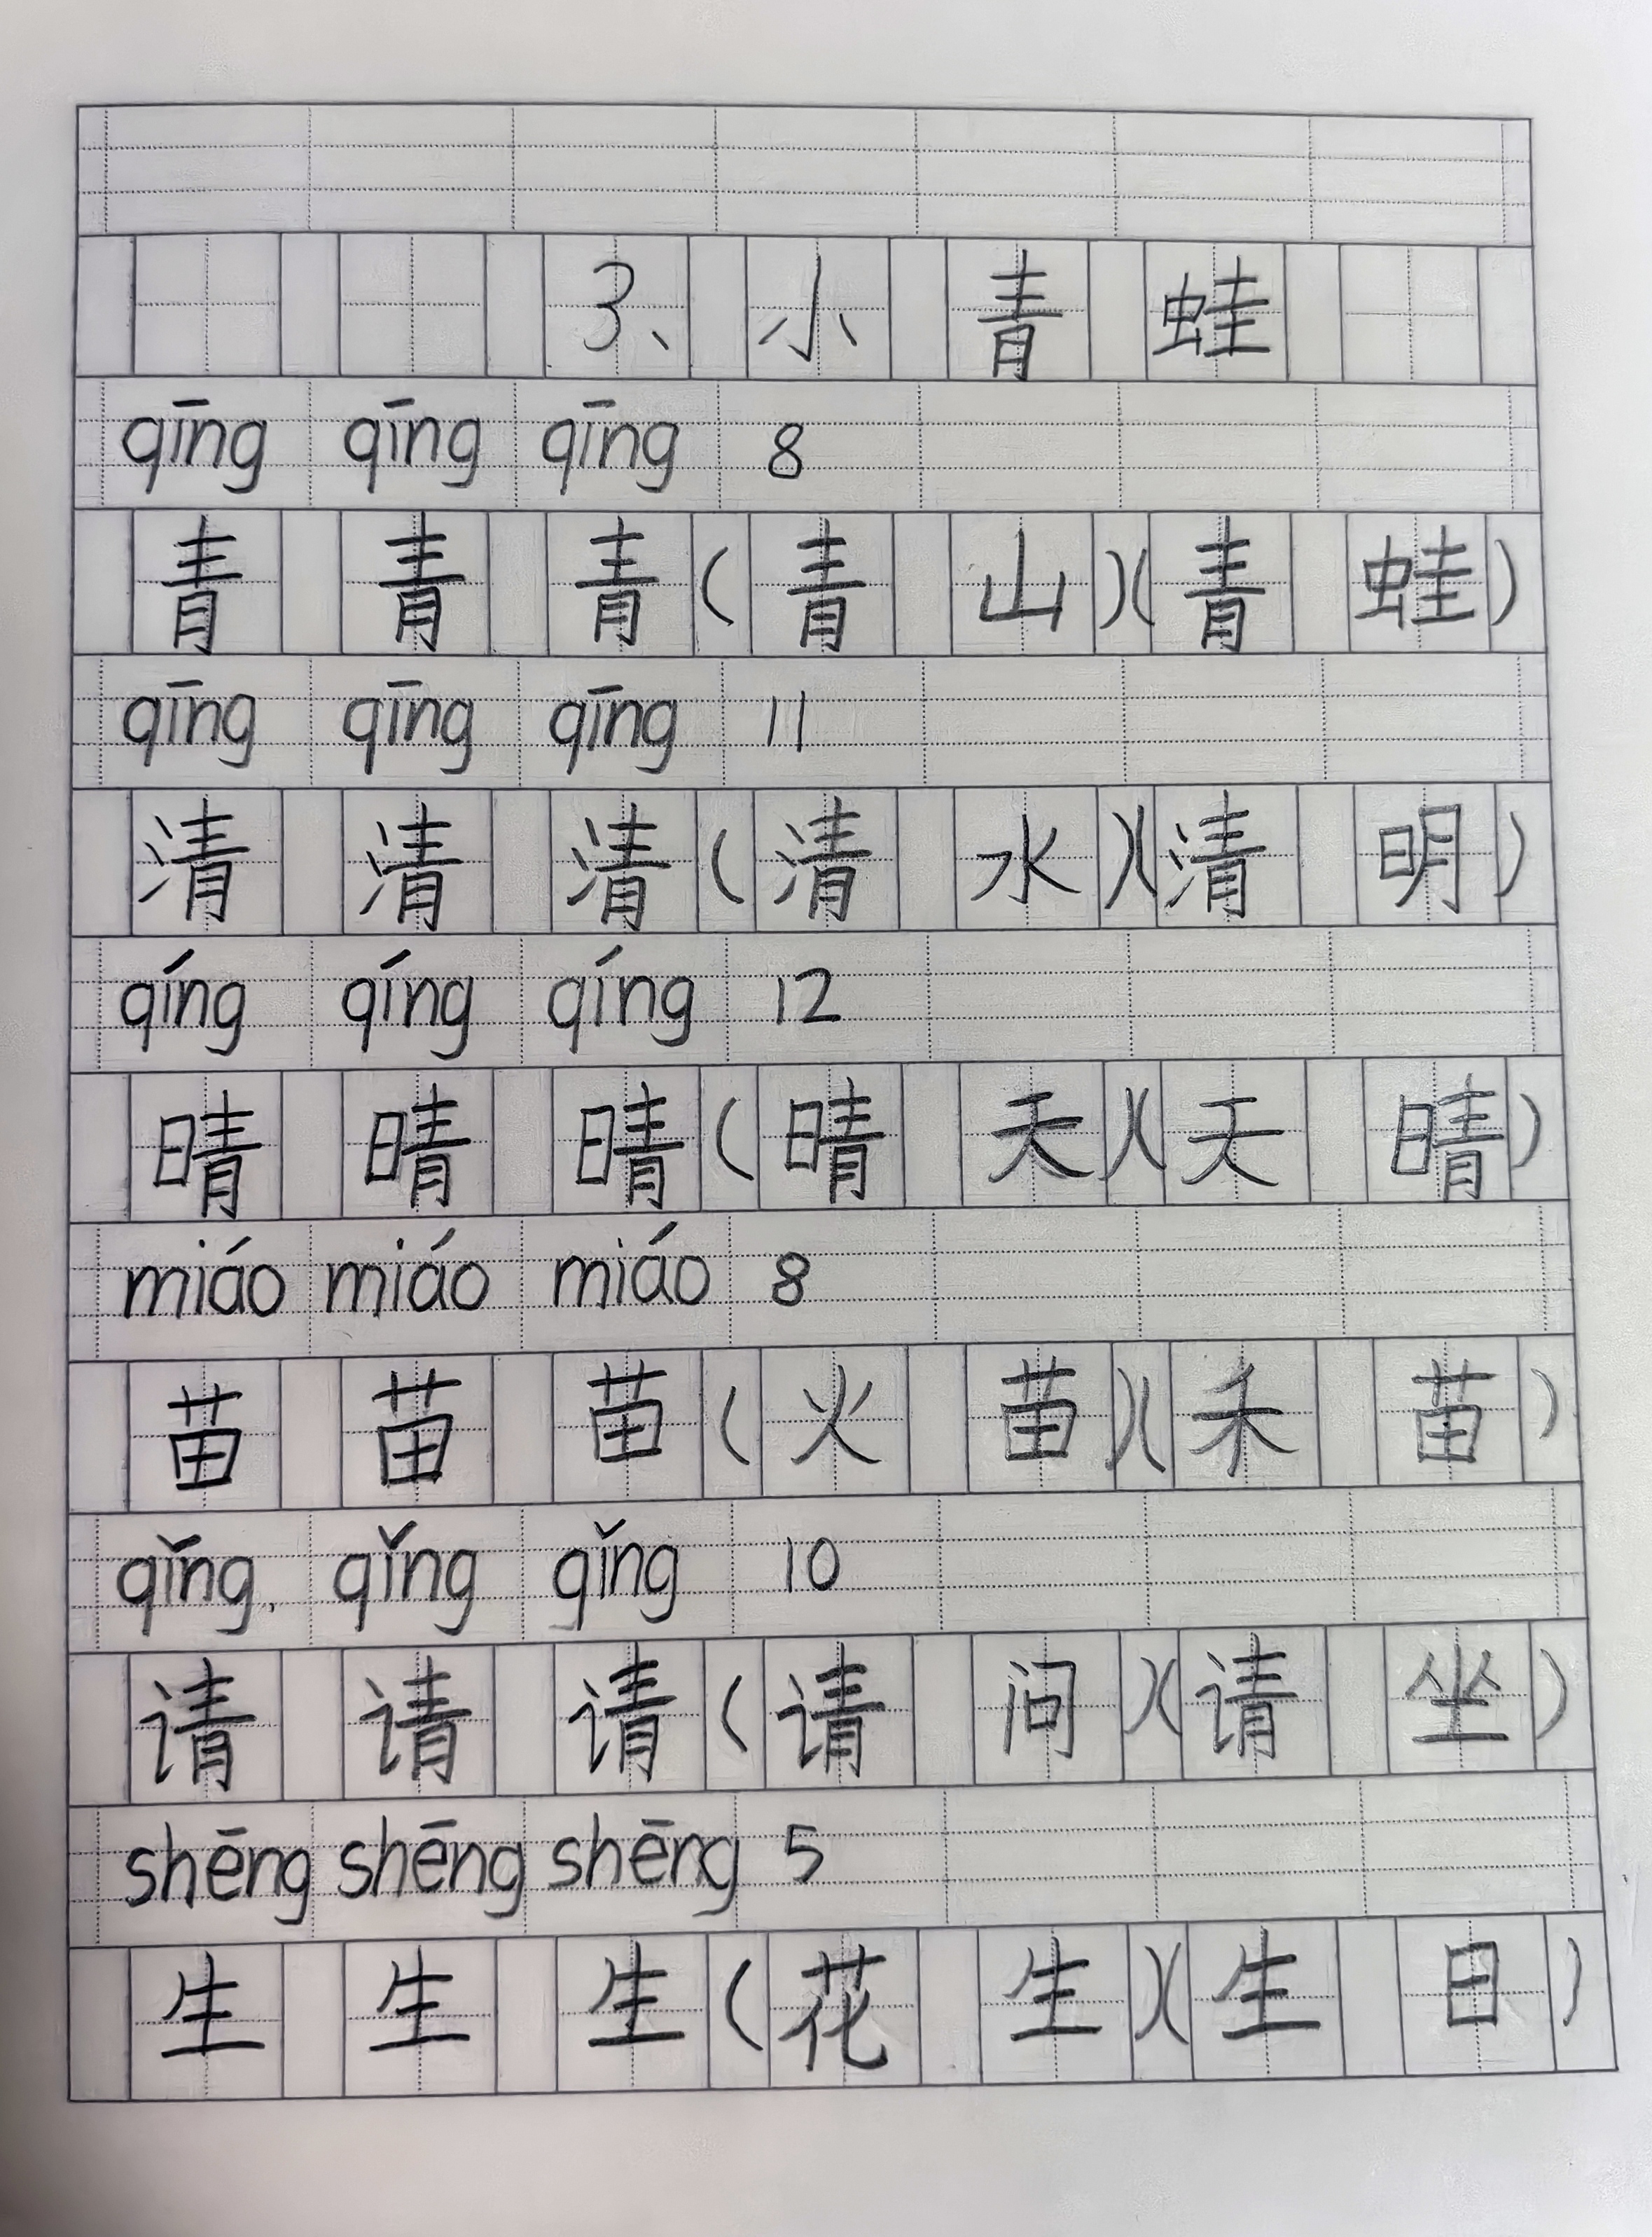 3、小青蛙
qīng qīng qīng 8
青青青(青山)(青蛙)
qīng qīng qīng 11
清清清(清水)(清明)
qíng qíng qíng 12
晴晴晴(晴天)(天晴)
miáo miáo miáo 8
苗苗苗(火苗)(禾苗)
qǐng qǐng qǐng 10
请请请(请问)(请坐)
shēng shēng shēng 5
生生生(花生)(生日)